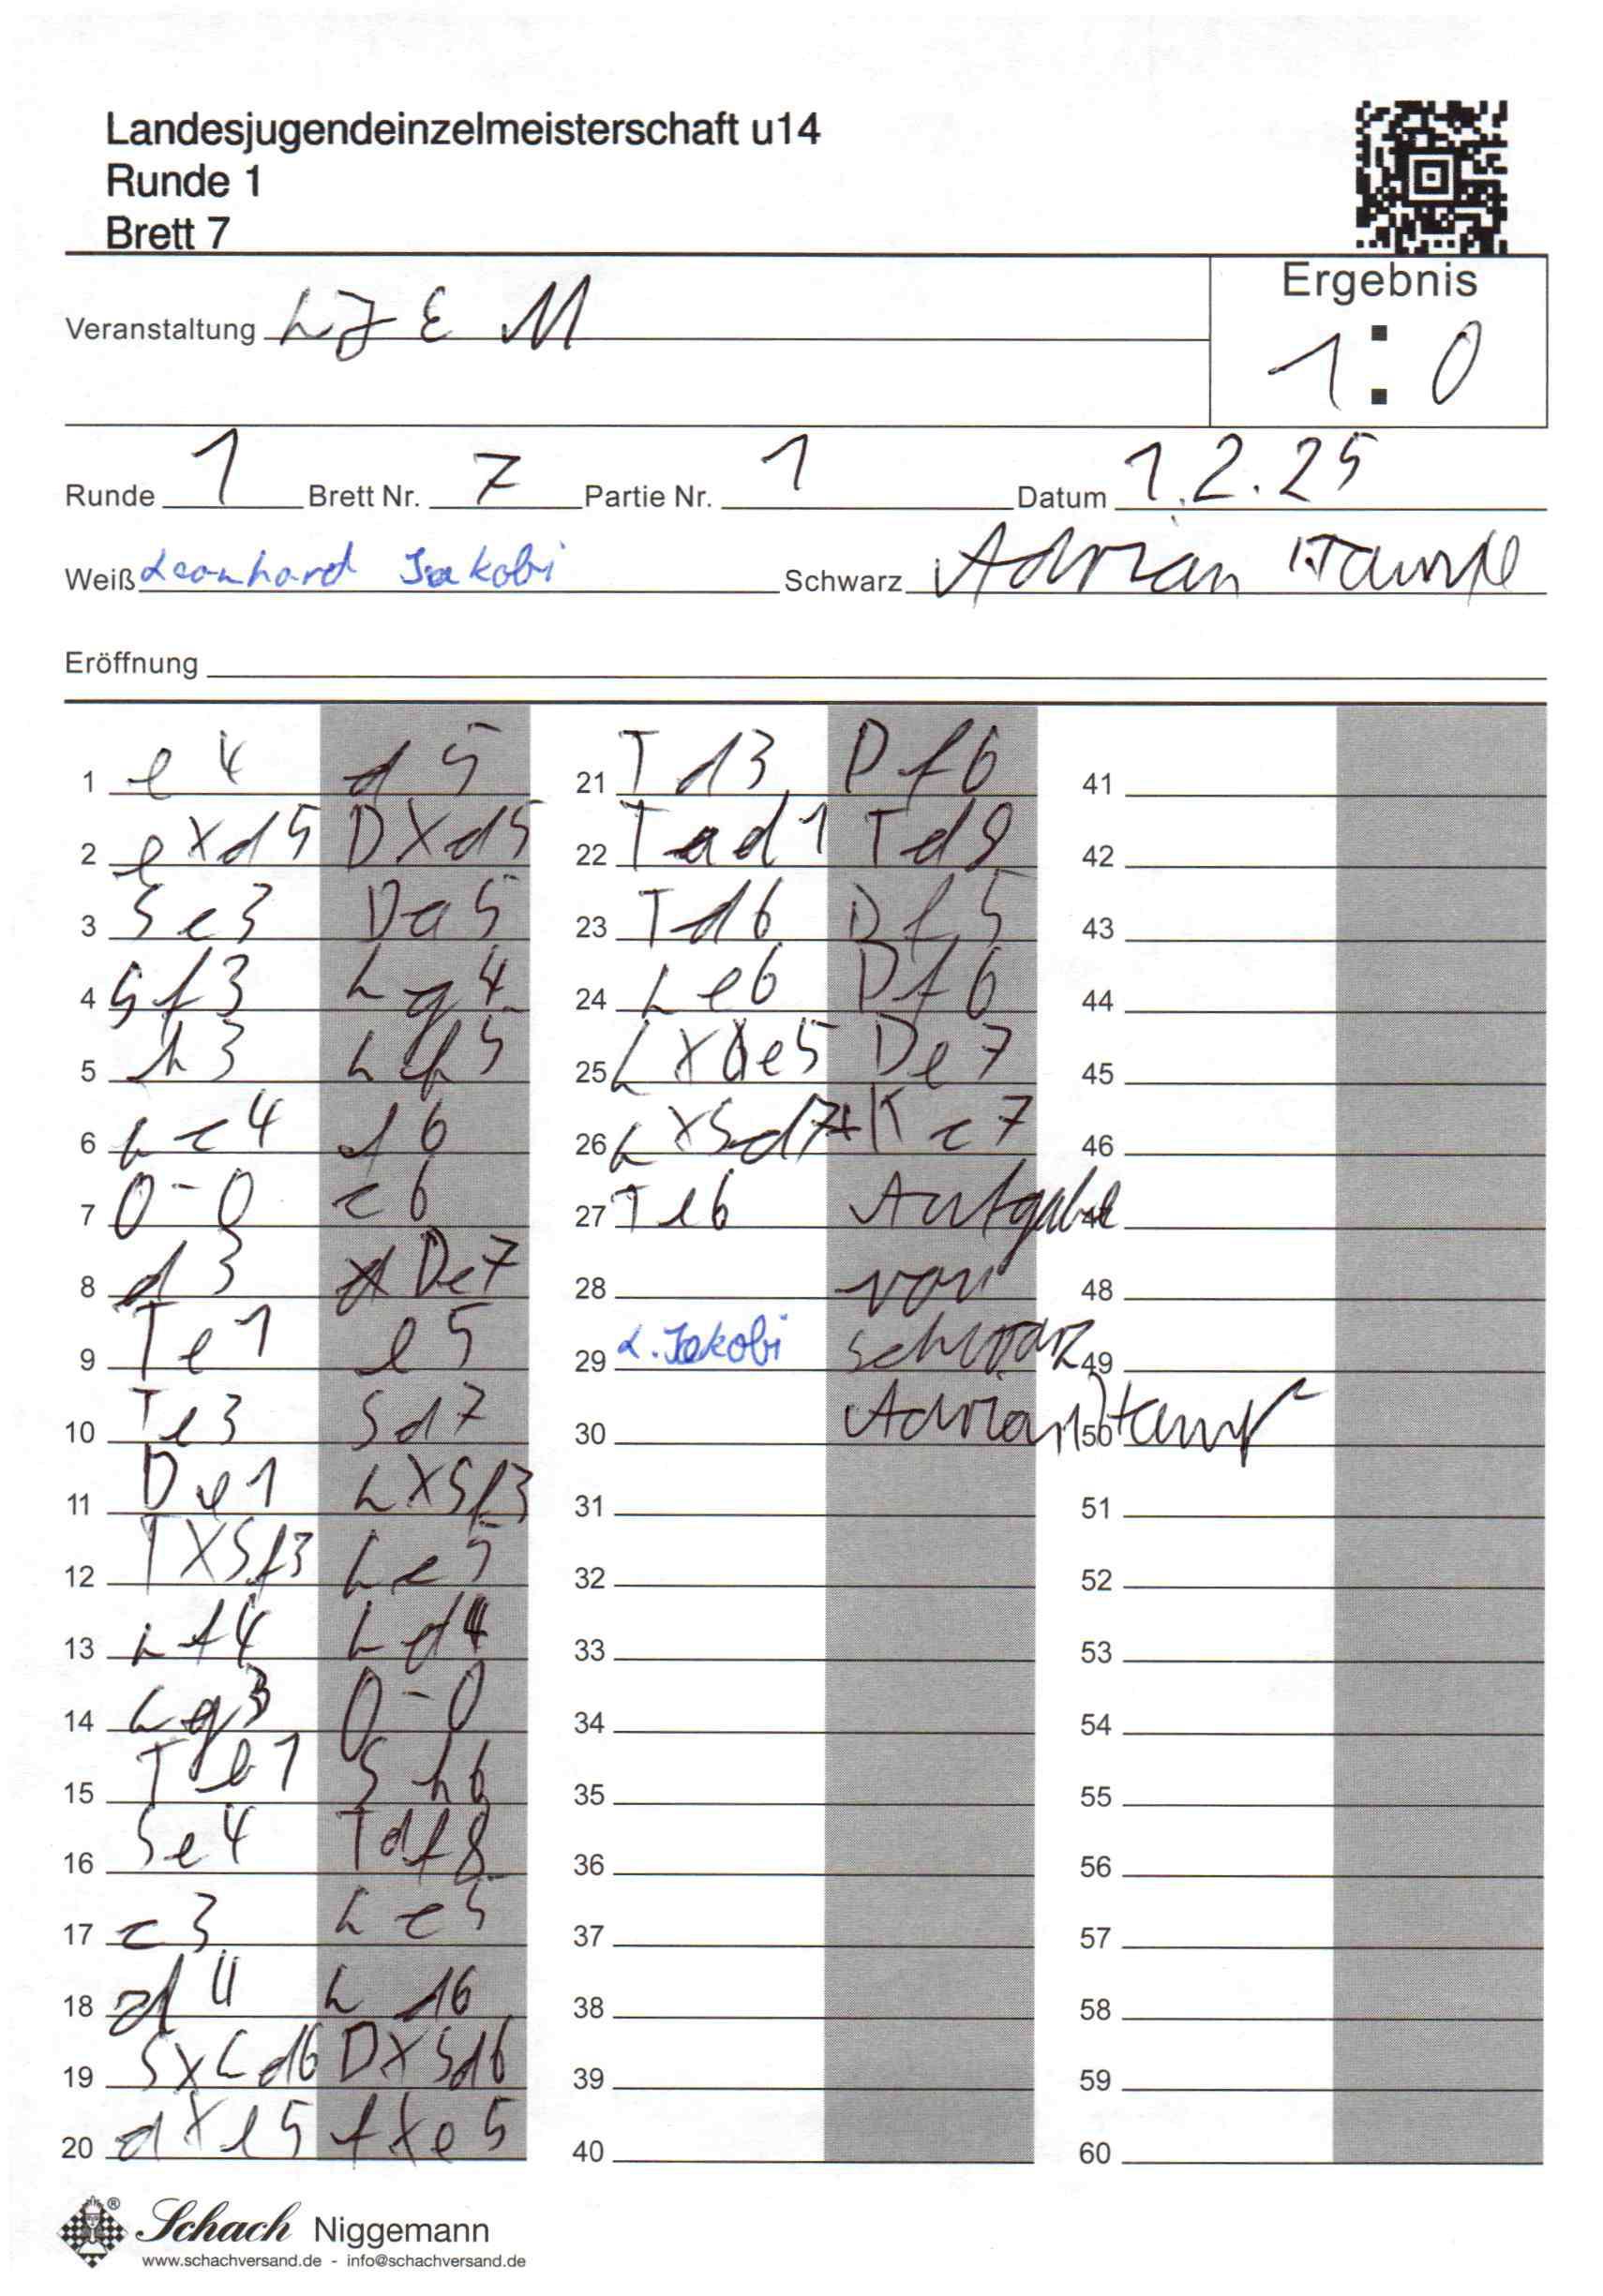 Landesjugendeinzelmeisterschaft u14
Runde 1
Brett 7
Ergebnis
1 : 0
Veranstaltung LJEM
Runde 1 Brett Nr. 7 Partie Nr. 1 Datum 1.2.25
Weiß Leonhard Jakobi Schwarz Adrian
Eröffnung
1 e4 d5 21 Td3 Df6 41
2 exd5 Dxd5 22 Tad1 Td8 42
3 Sc3 Da5 23 Td6 Df5 43
4 Sf3 Lg4 24 Le6 Df6 44
5 h3 Lh5 25 Lxe5 De7 45
6 Lc4 f6 26 LxSd7+ Kc7 46
7 0-0 c6 27 Te6 Aufgabe 47
8 d3 Dc7 28 von 48
9 Te1 e5 29 L. Jakobi schwarz 49
10 Te3 Sd7 30 Adrian 50
11 De1 LXSf3 31 51
12 TXSf3 Lc5 32 52
13 Lf4 Ld4 33 53
14 Lg3 0-0 34 54
15 Te1 Sh6 35 55
16 Se4 Tdf8 36 56
17 c3 Lc5 37 57
18 d4 Ld6 38 58
19 SxLd6 DxSd6 39 59
20 dxe5 fxe5 40 60
Schach Niggemann
www.schachversand.de - info@schachversand.de